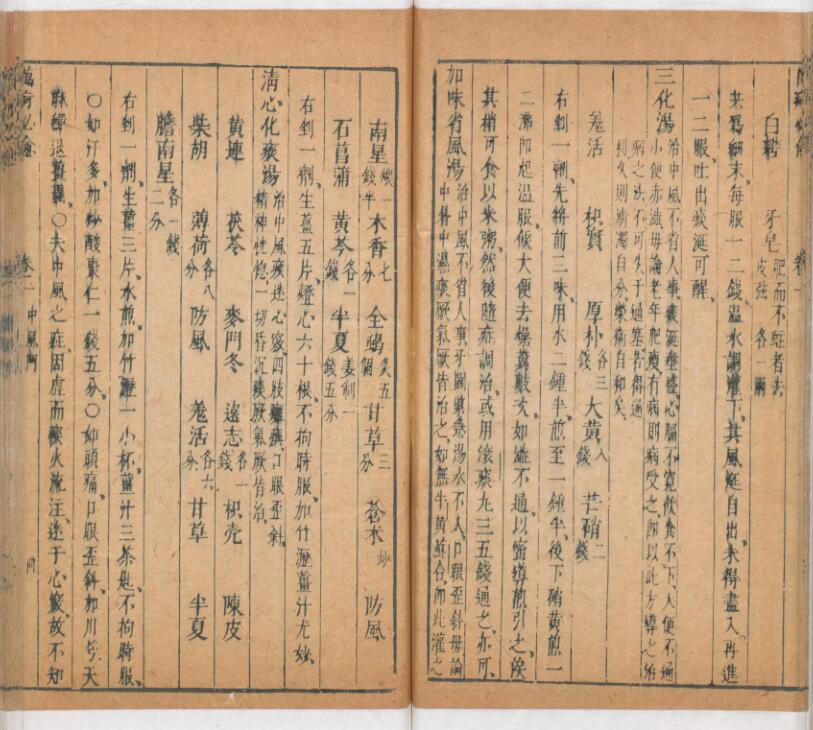 白礬 牙皂肥而不蛀者去皮弦各一兩
共爲細末每服一二錢温水調灌下其風涎自出未得盡入再進
一二服吐出痰涎可醒
三化湯治中風不省人事痰涎壅盛心膈不寛飲食不下大便不通
小便赤澁毋論老年肥瘦有病則病受之即以此方導之治
病之法不可失于通塞若得通
利久則清濁自分榮衛自和矣
羗活 枳實 厚朴各三錢 大黃八錢 芒硝二錢
右剉一劑先將前三味用水二鍾半煎至一鍾半後下硝黃煎一
二沸即起温服候大便去燥糞數次如澁不通以蜜導煎引之俟
其稍可食以米粥然後隨症調治或用滚痰丸三五錢通之亦可
加味省風湯治中風不省人事牙關緊急湯水不入口眼歪斜毋論
中暑中濕痰厥氣厥皆治之如無牛黄蘇合即此灌之
南星煨一錢半 木香七分 全蝎炙五個 甘草三分 蒼朮炒 防風
石菖蒲 黃芩各一錢 半夏姜制一錢五分
右剉一劑生薑五片燈心六十根不拘時服加竹瀝薑汁尤妙
清心化痰湯治中風痰迷心竅四肢癱瘓口眼歪斜
精神恍惚一切昏沉痰厥氣厥皆治
黃連 茯苓 麥門冬 遠志各一錢 枳壳 陳皮
柴胡 薄荷各八分 防風 羗活各六分 甘草 半夏
膽南星各一錢二分
右剉一劑生薑三片水煎加竹瀝一小杯薑汁三茶匙不拘時服
〇如汗多加炒酸棗仁一錢五分〇如頭痛口眼歪斜加川芎天
麻蟬退薑蠶〇夫中風之症因虚而痰火流注迷于心竅故不知
卷一 中風門